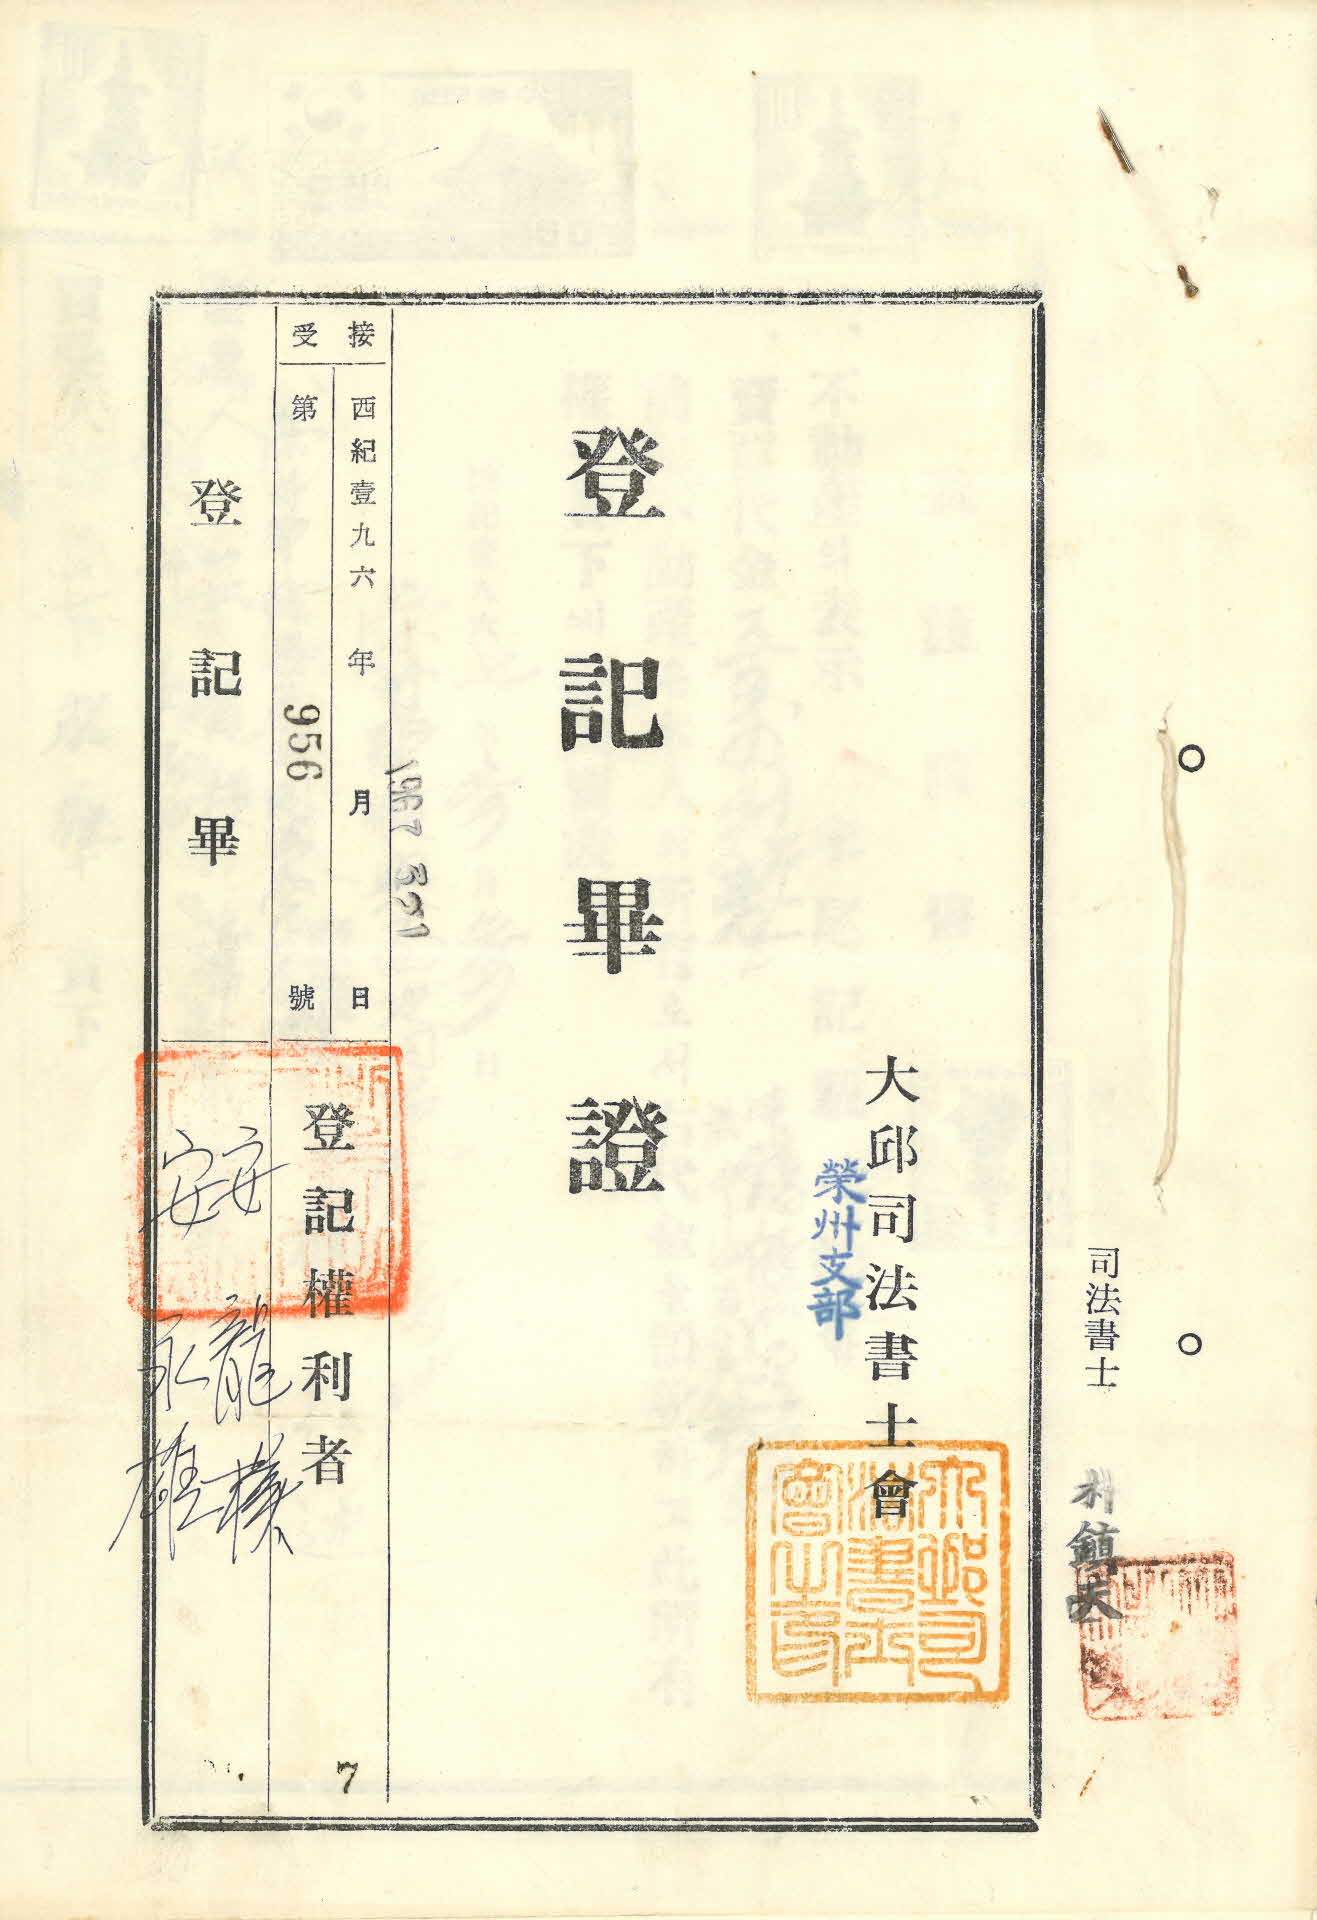 司法書士 朴鎭夫
大邱司法書士會
榮州支部
登記畢證
接受
西紀壹九六 年 月 日
1967 3 21
第 956 號
登記權利者
安龍模
安永雄
登記畢
7